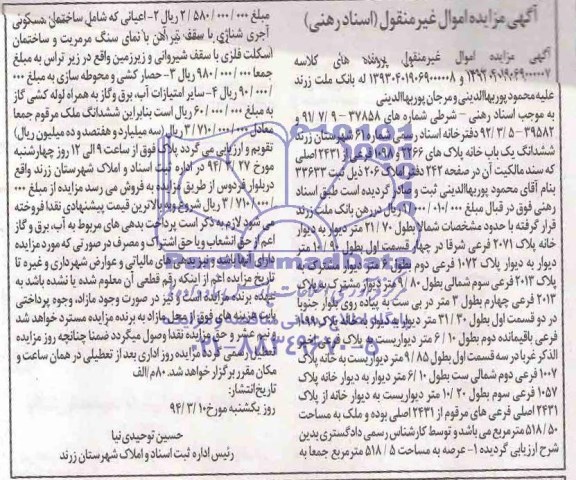 آگهی مزایده اموال غیر منقول (اسناد رهنی)
آگهی مزایده اموال غیرمنقول پرونده های کلاسه
۱۳۹۳۰۴۰۱۹۰۶۹۰۰۰۰۰۸ و ۱۳۹۲۰۴۰۱۹۰۶۹۰۰۰۰۰۷ له بانک ملت زرند
علیه محمود پوربهاالدینی و مرجان پوربهاالدینی
به موجب اسناد رهنی – شرطی شماره های ۳۷۸۵۸ – ۹۱/۷/۹ و
۳۹۵۸۲ – ۹۲/۳/۵ دفترخانه اسناد رسمی شماره ۶۱ شهرستان زرند
ششدانگ یک باب خانه پلاک های ۳۲۶۶ و ۱۰۹۸ فرعی از ۲۴۳۱ اصلی
که سند مالکیت آن در صفحه ۲۴۲ دفتر املاک ۲۰۶ ذیل ثبت ۳۳۶۳۳
بنام آقای محمود پوربهاالدینی ثبت و صادر گردیده است طبق اسناد
رهنی فوق در قبال مبلغ ۱/۰۱۰/۰۰۰/۰۰۰ ریال در رهن بانک ملت زرند
قرار گرفته با حدود مشخصات شمالا بطول ۲۱/۷۰ متر دیوار به دیوار
خانه پلاک ۲۰۷۱ فرعی شرقا در چهار قسمت اول بطول ۱۰/۹۰ متر
دیوار به دیوار پلاک ۱۰۷۲ فرعی دوم بطول متر دیوار مشترک به
پلاک ۲۰۱۳ فرعی سوم شمالی بطول ۹/۸۰ متر دیوار مشترک به پلاک
۲۰۱۳ فرعی چهارم بطول ۳ متر در بی ست به پیاده روی بلوار جنوبا
در دو قسمت اول بطول ۳۱/۳۰ متر دیوار به دیوار خانه پلاک
فرعی باقیمانده دوم بطول ۶/۱۰ متر دیواریست به پلاک فرعی
الذکر غربا در سه قسمت اول بطول ۹/۸۵ متر دیواریست به خانه پلاک
۱۰۰۷ فرعی دوم شمالی ست بطول ۶/۱۰ متر دیوار به دیوار پلاک
۱۰۵۷ فرعی سوم بطول ۱۰/۲۰ متر دیواریست به دیوار خانه از پلاک
۲۴۳۱ اصلی فرعی های مرقوم از ۲۴۳۱ اصلی بوده و ملک به مساحت
۵۱۸/۵۰ مترمربع می باشد و توسط کارشناس رسمی دادگستری بدین
شرح ارزیابی گردیده ۱- عرصه به مساحت ۵۱۸/۵ مترمربع جمعا به
مبلغ ۲/۵۸۰/۰۰۰/۰۰۰ ریال ۲- اعیانی که شامل ساختمان مسکونی
آجری شناژی با سقف تیرآهن با نمای سنگ مرمریت و ساختمان
اسکلت فلزی با سقف شیروانی و زیرزمین واقع در زیر تراس به مبلغ
جمعا ۹۸۰/۰۰۰/۰۰۰ ریال ۳- حصار کشی و محوطه سازی به مبلغ
۹۰/۰۰۰/۰۰۰ ریال ۴- سایر امتیازات آب، برق و گاز به همراه لوله کشی گاز
به مبلغ ۶۰/۰۰۰/۰۰۰ ریال است بنابراین ششدانگ ملک مرقوم جمعا
معادل ۳/۷۱۰/۰۰۰/۰۰۰ ریال (سه میلیارد و هفتصد و ده میلیون ریال)
تقویم و ارزیابی می گردد پلاک فوق از ساعت ۹ الی ۱۲ روز چهارشنبه
مورخ ۹۴/۳/۲۷ در اداره ثبت اسناد و املاک شهرستان زرند واقع
در بلوار فردوس از طریق مزایده به فروش می رسد مزایده از مبلغ
۳/۷۱۰/۰۰۰/۰۰۰ ریال شروع و به بالاترین قیمت پیشنهادی نقدا فروخته
می شود لازم به ذکر است پرداخت بدهی های مربوط به آب، برق و گاز
اعم از حق انشعاب و یا حق اشتراک و مصرف در صورتی که مورد مزایده
دارای آنها باشد و نیز بدهی های مالیاتی و عوارض شهرداری و غیره تا
تاریخ مزایده اعم از اینکه رقم قطعی آن معلوم شده یا نشده باشد به
عهده برنده مزایده است و نیز در صورت وجود مازاد، وجوه پرداختی
بابت هزینه های فوق از محل مازاد به برنده مزایده مسترد خواهد شد
و نیم عشر و حق مزایده نقدا وصول میگردد ضمنا چنانچه روز مزایده
تعطیل رسمی گردد مزایده روز اداری بعد از تعطیلی در همان ساعت و
مکان مقرر برگزار خواهد شد. ۸۰ م/الف
تاریخ انتشار:
روز یکشنبه مورخ ۹۴/۳/۱۰
حسین توحیدی نیا
رئیس اداره ثبت اسناد و املاک شهرستان زرند
ParsNamadData
۰۲۱-۸۸۳۴۹۶۷۰-۵